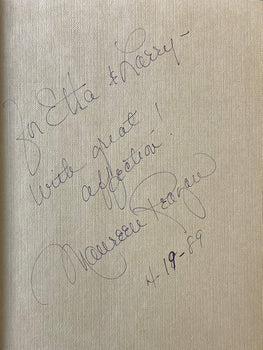 For Etta & Larry-
With great
affection!
Maureen Reagan
4-19-89